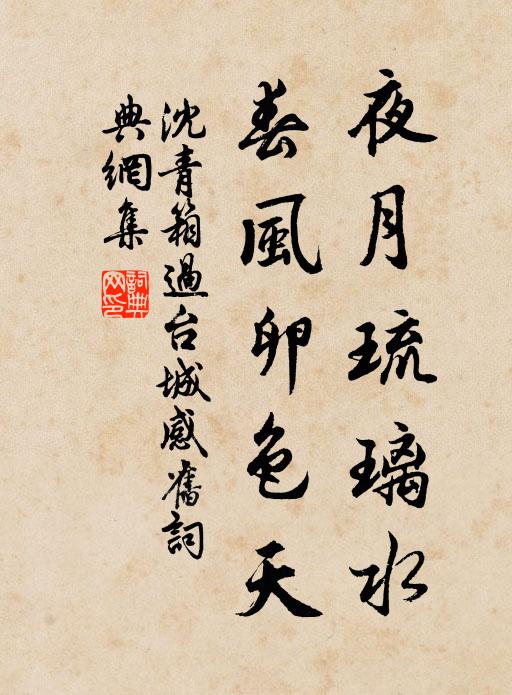 夜月琉璃水
春風卵色天
沈青箱過台城感舊詞
典網集
詞典网印